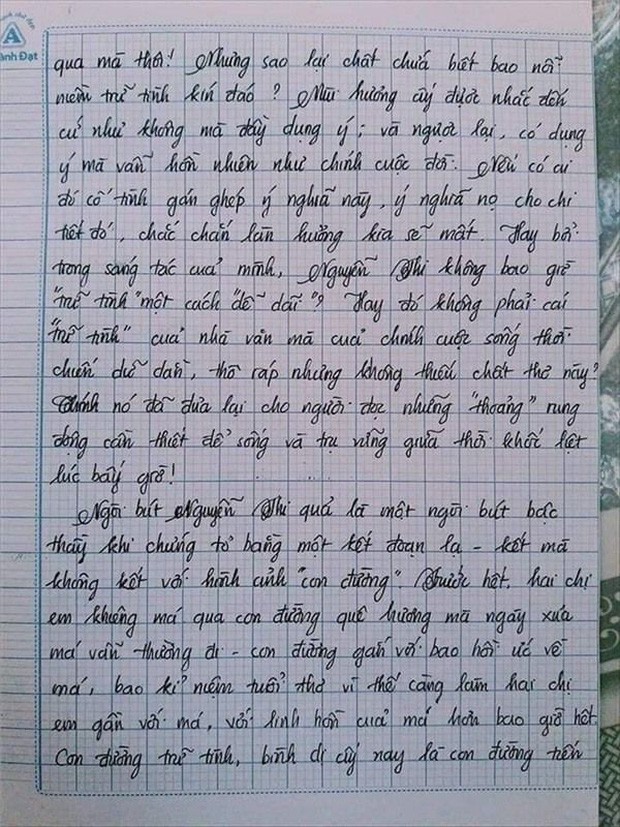 A
ành Đạt
qua mà thôi! Nhưng sao lại chất chứa biết bao nỗi
niềm trữ tình kín đáo? Mùi hương ấy được nhắc đến
cứ như không mà đầy dụng ý; và ngược lại, có dụng
ý mà vẫn hồn nhiên như chính cuộc đời. Nếu có ai
đó cố tình gán ghép ý nghĩa này, ý nghĩa nọ cho chi
tiết đó, chắc chắn làn hương kia sẽ mất. Hay bởi
trong sáng tác của mình, Nguyễn Thi không bao giờ
"trữ tình" một cách "dễ dãi"? Hay đó không phải cái
"trữ tình" của nhà văn mà của chính cuộc sống thời
chiến dữ dằn, thô ráp nhưng không thiếu chất thơ này?
Chính nó đã đưa lại cho người đọc những "thoảng" rung
động cần thiết để sống và trụ vững giữa thời khốc liệt
lúc bấy giờ!
Ngòi bút Nguyễn Thi quả là một ngòi bút bậc
thầy khi chứng tỏ bằng một kết đoạn lạ - kết mà
không kết với hình ảnh "con đường". Trước hết, hai chị
em khiêng má qua con đường quê hương mà ngày xưa
má vẫn thường đi - con đường gắn với bao hồi ức về
má, bao kỉ niệm tuổi thơ vì thế càng làm hai chị
em gần với má, với linh hồn của má hơn bao giờ hết.
Con đường trữ tình, bình dị ấy nay là con đường tiến